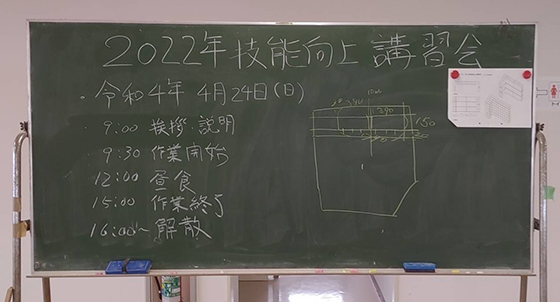 2022年技能向上 講習会
・令和4年 4月24日(日)
9:00 挨拶・説明
9:30 作業開始
12:00 昼食
15:00 作業終了
16:00~ 解散
150